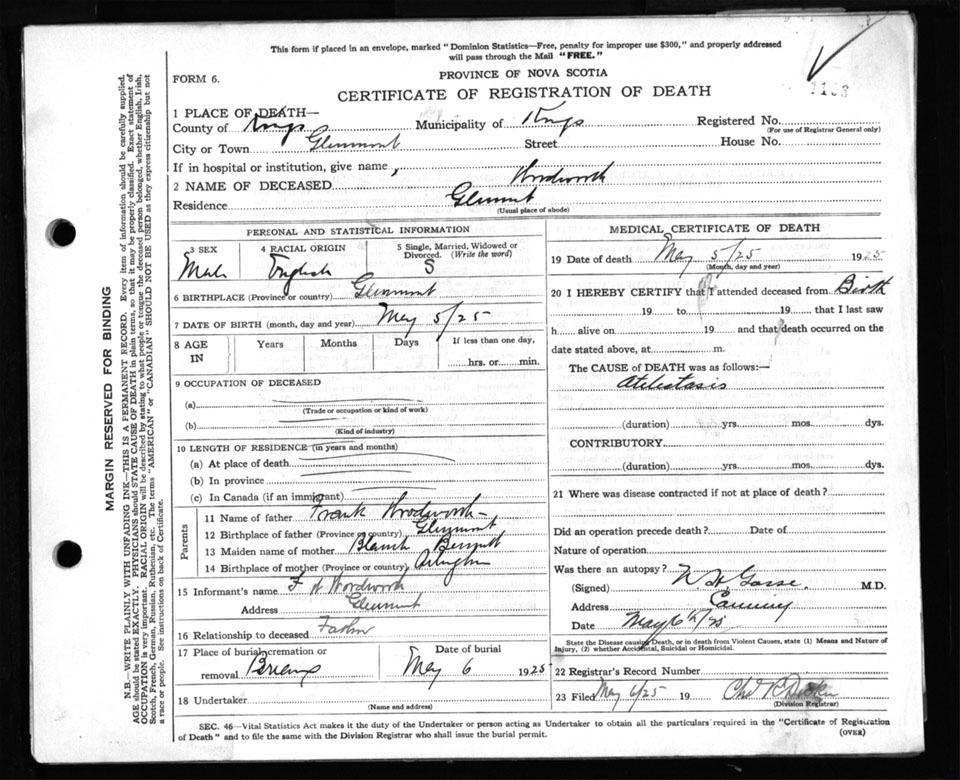 This form if placed in an envelope, marked "Dominion Statistics—Free, penalty for improper use $300," and properly addressed
will pass through the Mail "FREE."
FORM 6.
PROVINCE OF NOVA SCOTIA
CERTIFICATE OF REGISTRATION OF DEATH
MARGIN RESERVED FOR BINDING
N.B.—WRITE PLAINLY WITH UNFADING INK—THIS IS A PERMANENT RECORD. Every item of information should be carefully supplied.
AGE should be stated EXACTLY. PHYSICIANS should STATE CAUSE OF DEATH in plain terms, so that it may be properly classified. Exact statement of
OCCUPATION is very important. RACIAL ORIGIN will be described by stating to what people or tongue the deceased person belonged, whether English, Irish,
Scotch, French, German, Russian, Ruthenian, etc. The terms "AMERICAN" or "CANADIAN" SHOULD NOT BE USED as they express citizenship but not
a race or people. See instructions on back of Certificate.
1 PLACE OF DEATH—
County of Kings Municipality of Kings Registered No.
(For use of Registrar General only)
City or Town Glenmont Street House No.
If in hospital or institution, give name
2 NAME OF DECEASED Woodworth
Residence Glenmont
(Usual place of abode)
PERSONAL AND STATISTICAL INFORMATION
3 SEX 4 RACIAL ORIGIN 5 Single, Married, Widowed or
Divorced. (Write the word)
Male English S
6 BIRTHPLACE (Province or country) Glenmont
7 DATE OF BIRTH (month, day and year) May 5/25
8 AGE Years Months Days If less than one day,
IN hrs. or min.
9 OCCUPATION OF DECEASED
(a)
(Trade or occupation or kind of work)
(b)
(Kind of industry)
10 LENGTH OF RESIDENCE (in years and months)
(a) At place of death
(b) In province
(c) In Canada (if an immigrant)
Parents
11 Name of father Frank Woodworth
12 Birthplace of father (Province or country) Glenmont
13 Maiden name of mother Blanch Bennett
14 Birthplace of mother (Province or country) Arlington
15 Informant's name F W Woodworth
Address Glenmont
16 Relationship to deceased Father
17 Place of burial, cremation or Date of burial
removal May 6 1925
18 Undertaker
(Name and address)
MEDICAL CERTIFICATE OF DEATH
19 Date of death May 5/25 1925
(Month, day and year)
20 I HEREBY CERTIFY that I attended deceased from Birth
19 to 19 that I last saw
h alive on 19 and that death occurred on the
date stated above, at m.
The CAUSE of DEATH was as follows:—
Atelectasis
(duration) yrs. mos. dys.
CONTRIBUTORY
(duration) yrs. mos. dys.
21 Where was disease contracted if not at place of death?
Did an operation precede death? Date of
Nature of operation
Was there an autopsy?
(Signed) M.D.
Address Canning
Date May 6th/25
State the Disease causing Death, or in death from Violent Causes, state (1) Means and Nature of
Injury, (2) whether Accidental, Suicidal or Homicidal.
22 Registrar's Record Number
23 Filed May 6/25 19
(Division Registrar)
SEC. 46—Vital Statistics Act makes it the duty of the Undertaker or person acting as Undertaker to obtain all the particulars required in the "Certificate of Registration
of Death" and to file the same with the Division Registrar who shall issue the burial permit.
(OVER)